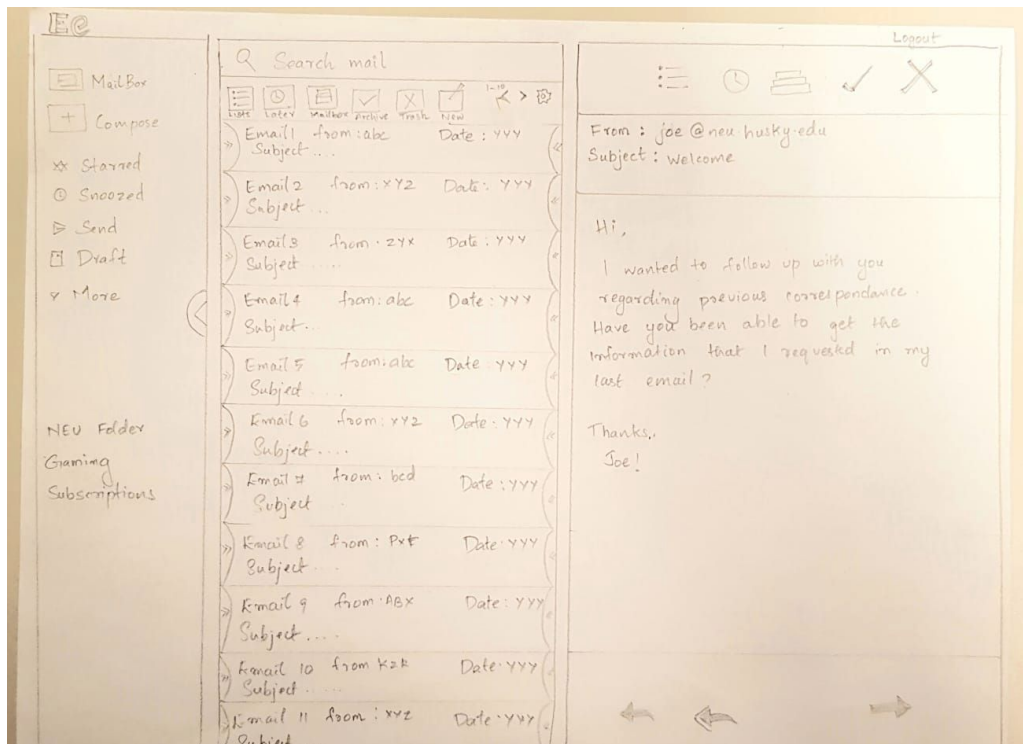 Ee
Logout
MailBox
Compose
Starred
Snoozed
Send
Draft
More
NEU Folder
Gaming
Subscriptions
Search mail
1-10
Lists Later Mailbox Archive Trash New
Email 1 from : abc Date : YYY
Subject ....
Email 2 from : XYZ Date : YYY
Subject ...
Email 3 from . ZYX Date : YYY
Subject .....
Email 4 from : abc Date : YYY
Subject ..
Email 5 from : abc Date YYY
Subject ....
Email 6 from : XYZ Date : YYY
Subject ....
Email 7 from : bcd Date : YYY
Subject
Email 8 from : Date . YYY
Subject ....
Email 9 from . ABX Date : YYY
Subject ....
Email 10 from KZK Date . YYY
Subject .....
Email 11 from : XYZ Date . YYY
Subject
From : joe @ neu.husky.edu
Subject : Welcome
Hi,
I wanted to follow up with you
regarding previous correspondance.
Have you been able to get the
information that I requested in my
last email ?
Thanks,.
Joe !